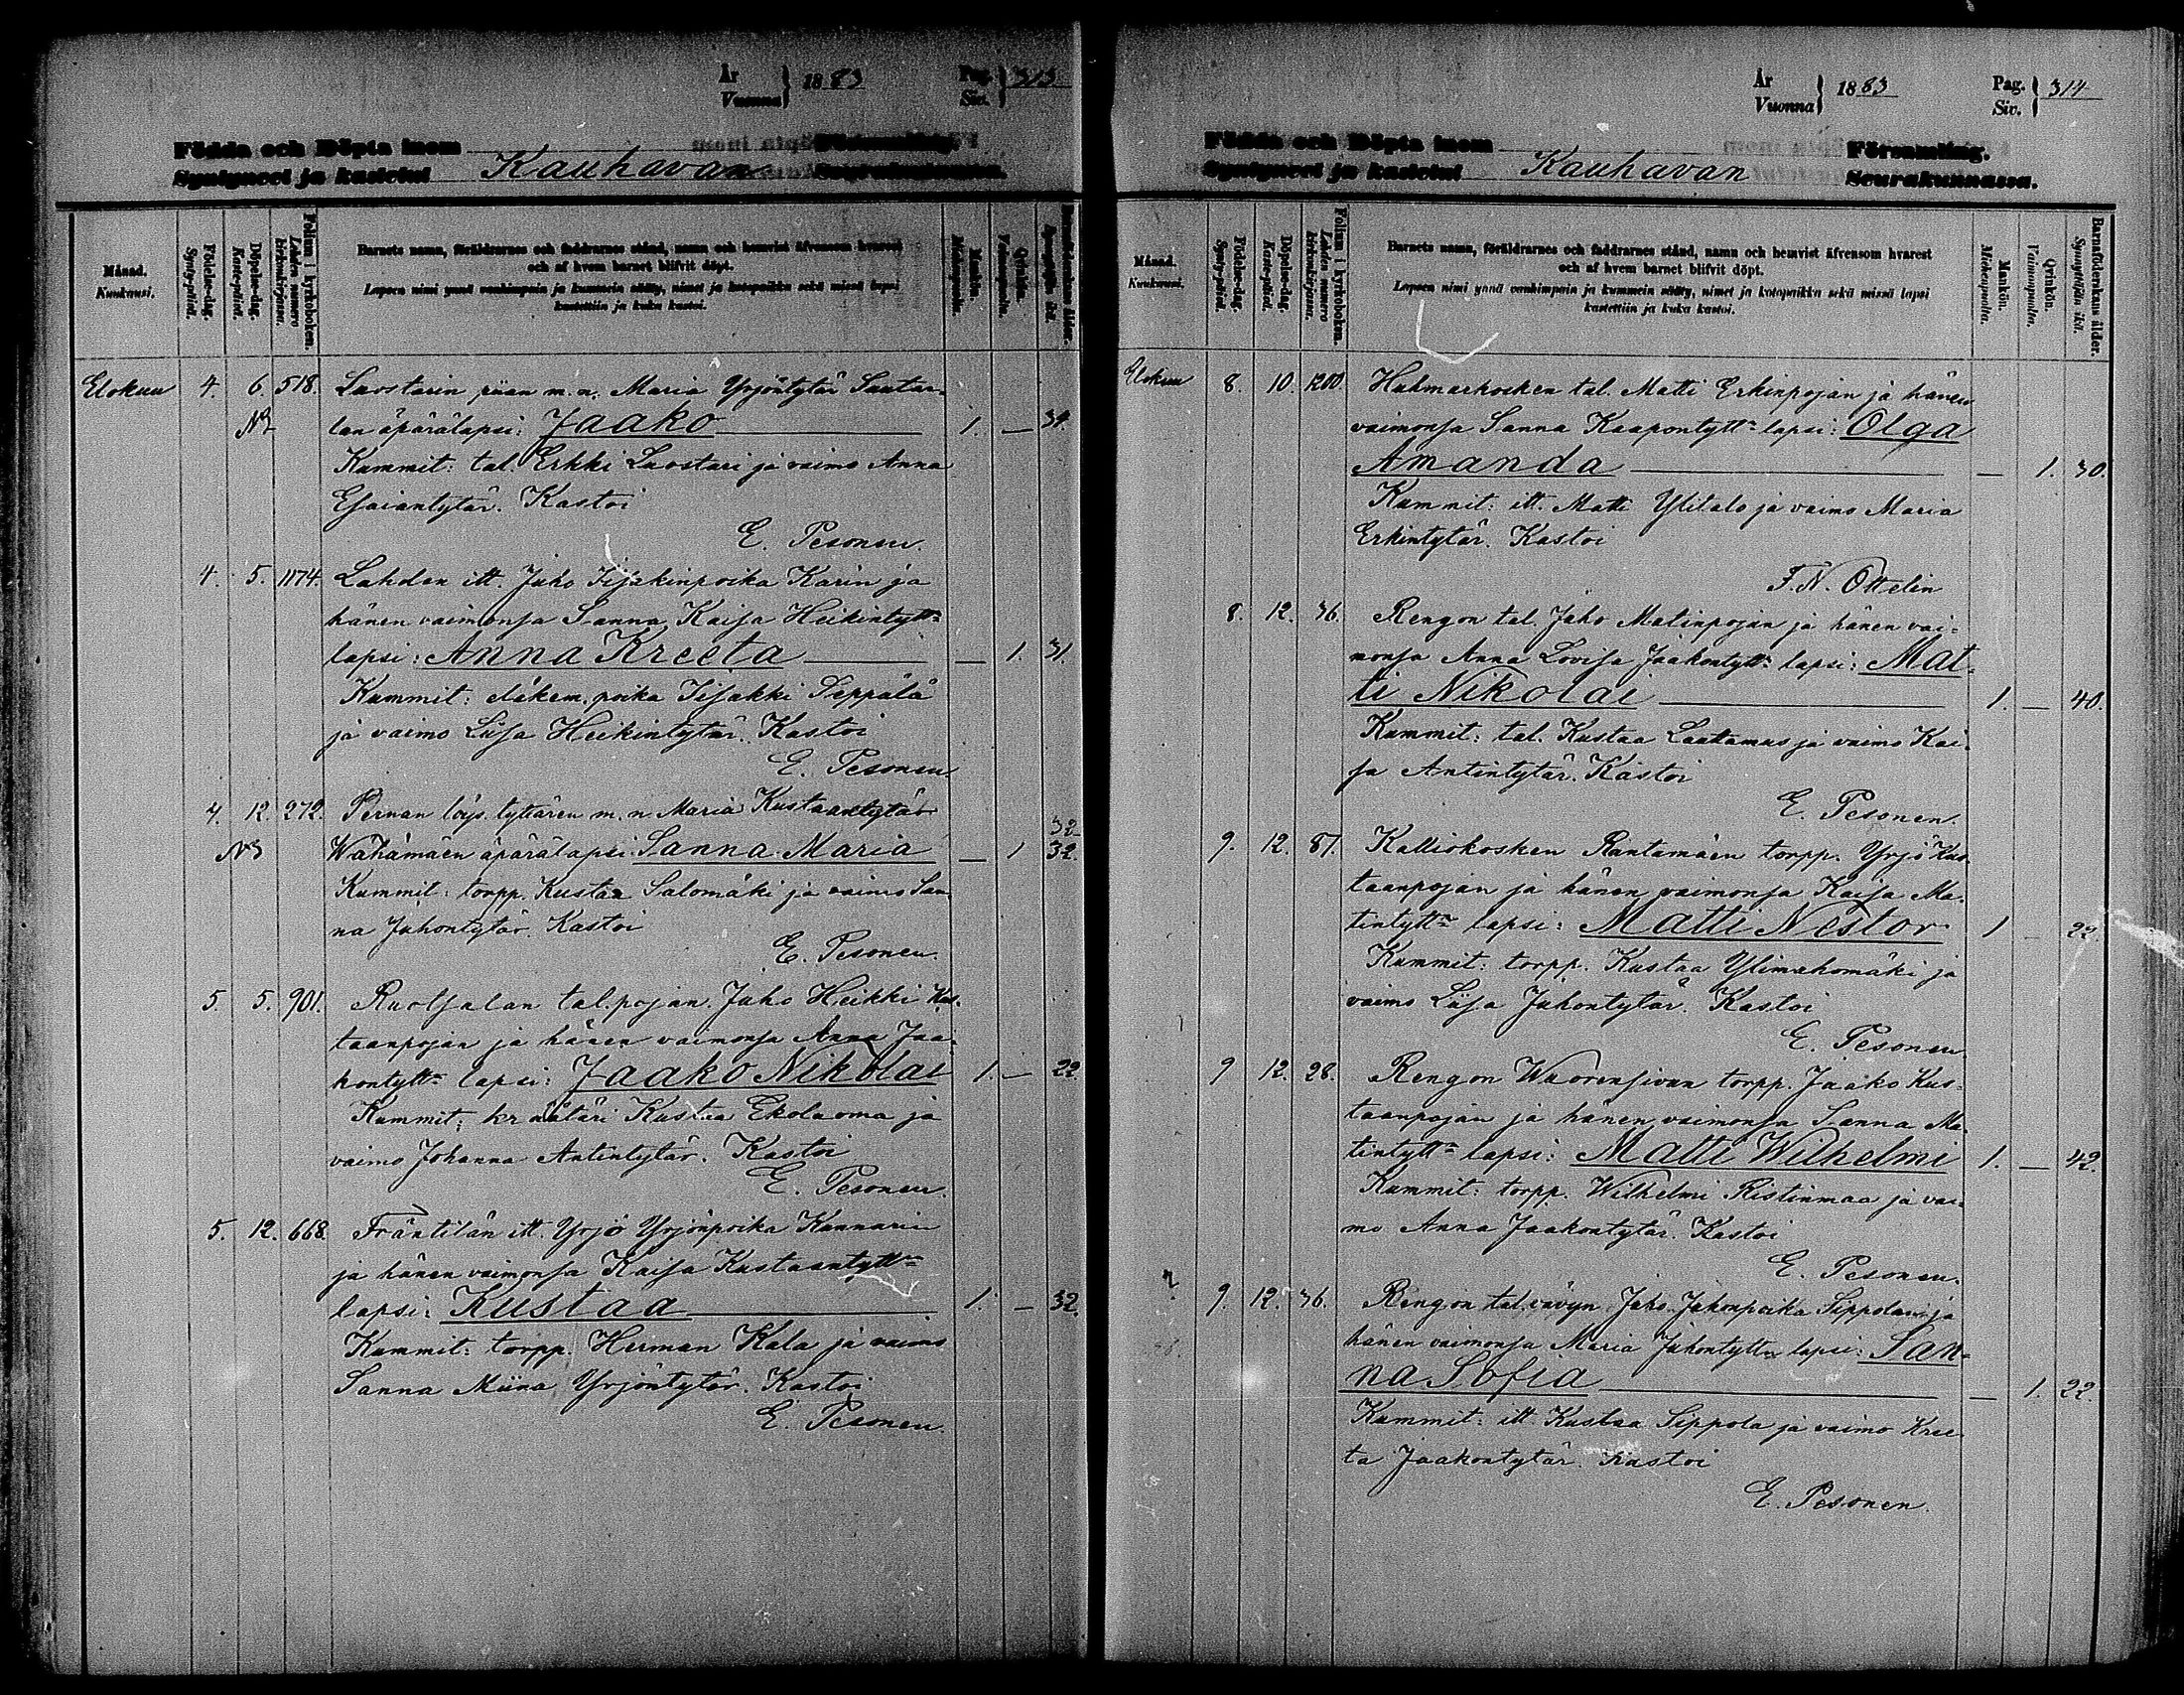 År
Vuonna } 1883
Pag.
Siv. } 313
Födda och Döpta inom
Syntyneet ja kastetut Kauhavan
Månad.
Kuukausi.
Födelse-dag.
Synty-päivä.
Döpelse-dag.
Kaste-päivä.
Folium i kyrkoboken.
Lehden numero kirkonkirjassa.
Barnets namn, föräldrarnes och faddrarnes stånd, namn och hemvist äfvensom hvarest
och af hvem barnet blifvit döpt.
Lapsen nimi ynnä vanhimpain ja kummein sääty, nimet ja kotopaikka sekä missä lapsi
kastettiin ja kuka kastoi.
Mankön.
Miehenpuolia.
Qvinkön.
Vaimonpuolia.
Elokuu 4. 6. 518. Luostarin piian m. n. Maria Yrjöntytär Sautar-
lan äpärälapsi: Jaako 1. — 34
Kummit: tal. Erkki Luostari ja vaimo Anna
Esaiantytär. Kastoi
E. Pesonen.
4. 5. 1174. Lahden itt. Juho Iisakinpoika Karin ja
hänen vaimonsa Sanna Kaisa Heikintytt:n
lapsi: Anna Kreeta — 1. 31.
Kummit: eläkem. poika Iisakki Seppälä
ja vaimo Liisa Heikintytär. Kastoi
E. Pesonen.
4. 12. 272. Pernan löys. tyttären m. n. Maria Kustaantytär
32
Wähämäen äpärälapsi Sanna Maria — 1 32.
Kummit: torpp. Kustaa Salomäki ja vaimo San-
na Juhontytär. Kastoi
E. Pesonen.
5. 5. 901. Ruotsalan tal. pojan Juho Heikki Kus-
taanpojan ja hänen vaimonsa Anna Jaa-
kontytt:n lapsi: Jaako Nikolai 1. — 22.
Kummit: kr räätäri Kustaa Ekolaoma ja
vaimo Johanna Antintytär. Kastoi
E. Pesonen.
5. 12. 668. Fräntilän itt. Yrjö Yrjönpoika Kannarin
ja hänen vaimonsa Kaisa Kustaantytt:n
lapsi: Kustaa 1. — 32.
Kummit: torpp. Herman Kala ja vaimo
Sanna Miina Yrjöntytär. Kastoi
E. Pesonen.
År
Vuonna } 1883
Pag.
Siv. } 314
Födda och Döpta inom Församling.
Syntyneet ja kastetut Kauhavan Seurakunnassa.
Månad.
Kuukausi.
Födelse-dag.
Synty-päivä.
Döpelse-dag.
Kaste-päivä.
Folium i kyrkoboken.
Lehden numero kirkonkirjassa.
Barnets namn, föräldrarnes och faddrarnes stånd, namn och hemvist äfvensom hvarest
och af hvem barnet blifvit döpt.
Lapsen nimi ynnä vanhimpain ja kummein sääty, nimet ja kotopaikka sekä missä lapsi
kastettiin ja kuka kastoi.
Mankön.
Miehenpuolia.
Qvinkön.
Vaimonpuolia.
Barnaföderskans ålder.
Synnyttäjän ikä.
Elokuu 8. 10. 1200. Huhmarkosken tal. Matti Erkinpojan ja hänen
vaimonsa Sanna Kaapontytt:n lapsi: Olga
Amanda — 1. 30.
Kummit: itt. Matti Ylitalo ja vaimo Maria
Erkintytär. Kastoi
F. N. Ottelin
8. 12. 36. Rengon tal. Juho Matinpojan ja hänen vai-
monsa Anna Lovisa Jaakontytt:n lapsi: Mat-
ti Nikolai 1. — 40.
Kummit: tal. Kustaa Laattamus ja vaimo Kai-
sa Antintytär. Kastoi
E. Pesonen.
9. 12. 87. Kalliokosken Rantamäen torpp. Yrjö Kus-
taanpojan ja hänen vaimonsa Kaisa Ma-
tintytt:n lapsi: Matti Nestor 1 — 22.
Kummit: torpp. Kustaa Ylimahomäki ja
vaimo Liisa Juhontytär. Kastoi
E. Pesonen.
9 12. 28. Rengon Wuorensivun torpp. Jaako Kus-
taanpojan ja hänen vaimonsa Sanna Ma-
tintytt:n lapsi: Matti Wilhelmi 1. — 42.
Kummit: torpp. Wilhelmi Ristinmaa ja vai-
mo Anna Jaakontytär. Kastoi
E. Pesonen.
9. 12. 36. Rengon tal. vävyn Juho Juhonpoika Sippolan ja
hänen vaimonsa Maria Juhontytt:n lapsi: San-
na Sofia — 1. 22.
Kummit: itt Kustaa Sippola ja vaimo Kree-
ta Jaakontytär. Kastoi
E. Pesonen.